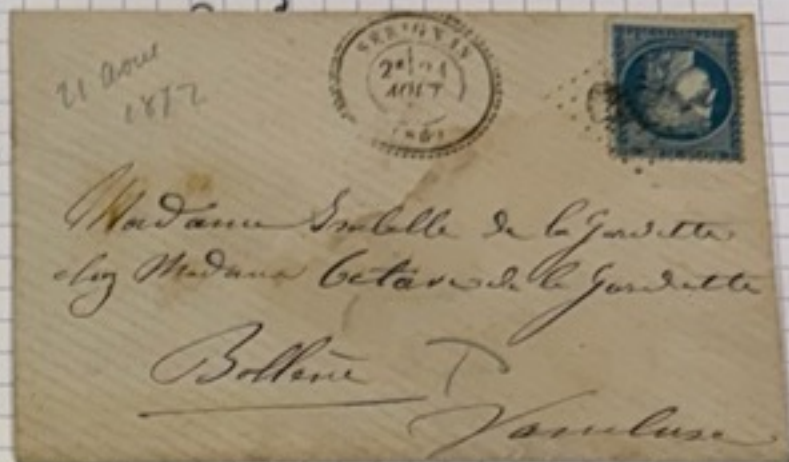 21 aout
1872
SERIGNAN
2e 21
AOUT
(86)
Madame Isabelle de la Gardette
chez Madame Octavie de la Gardette
Bollène
Vaucluse